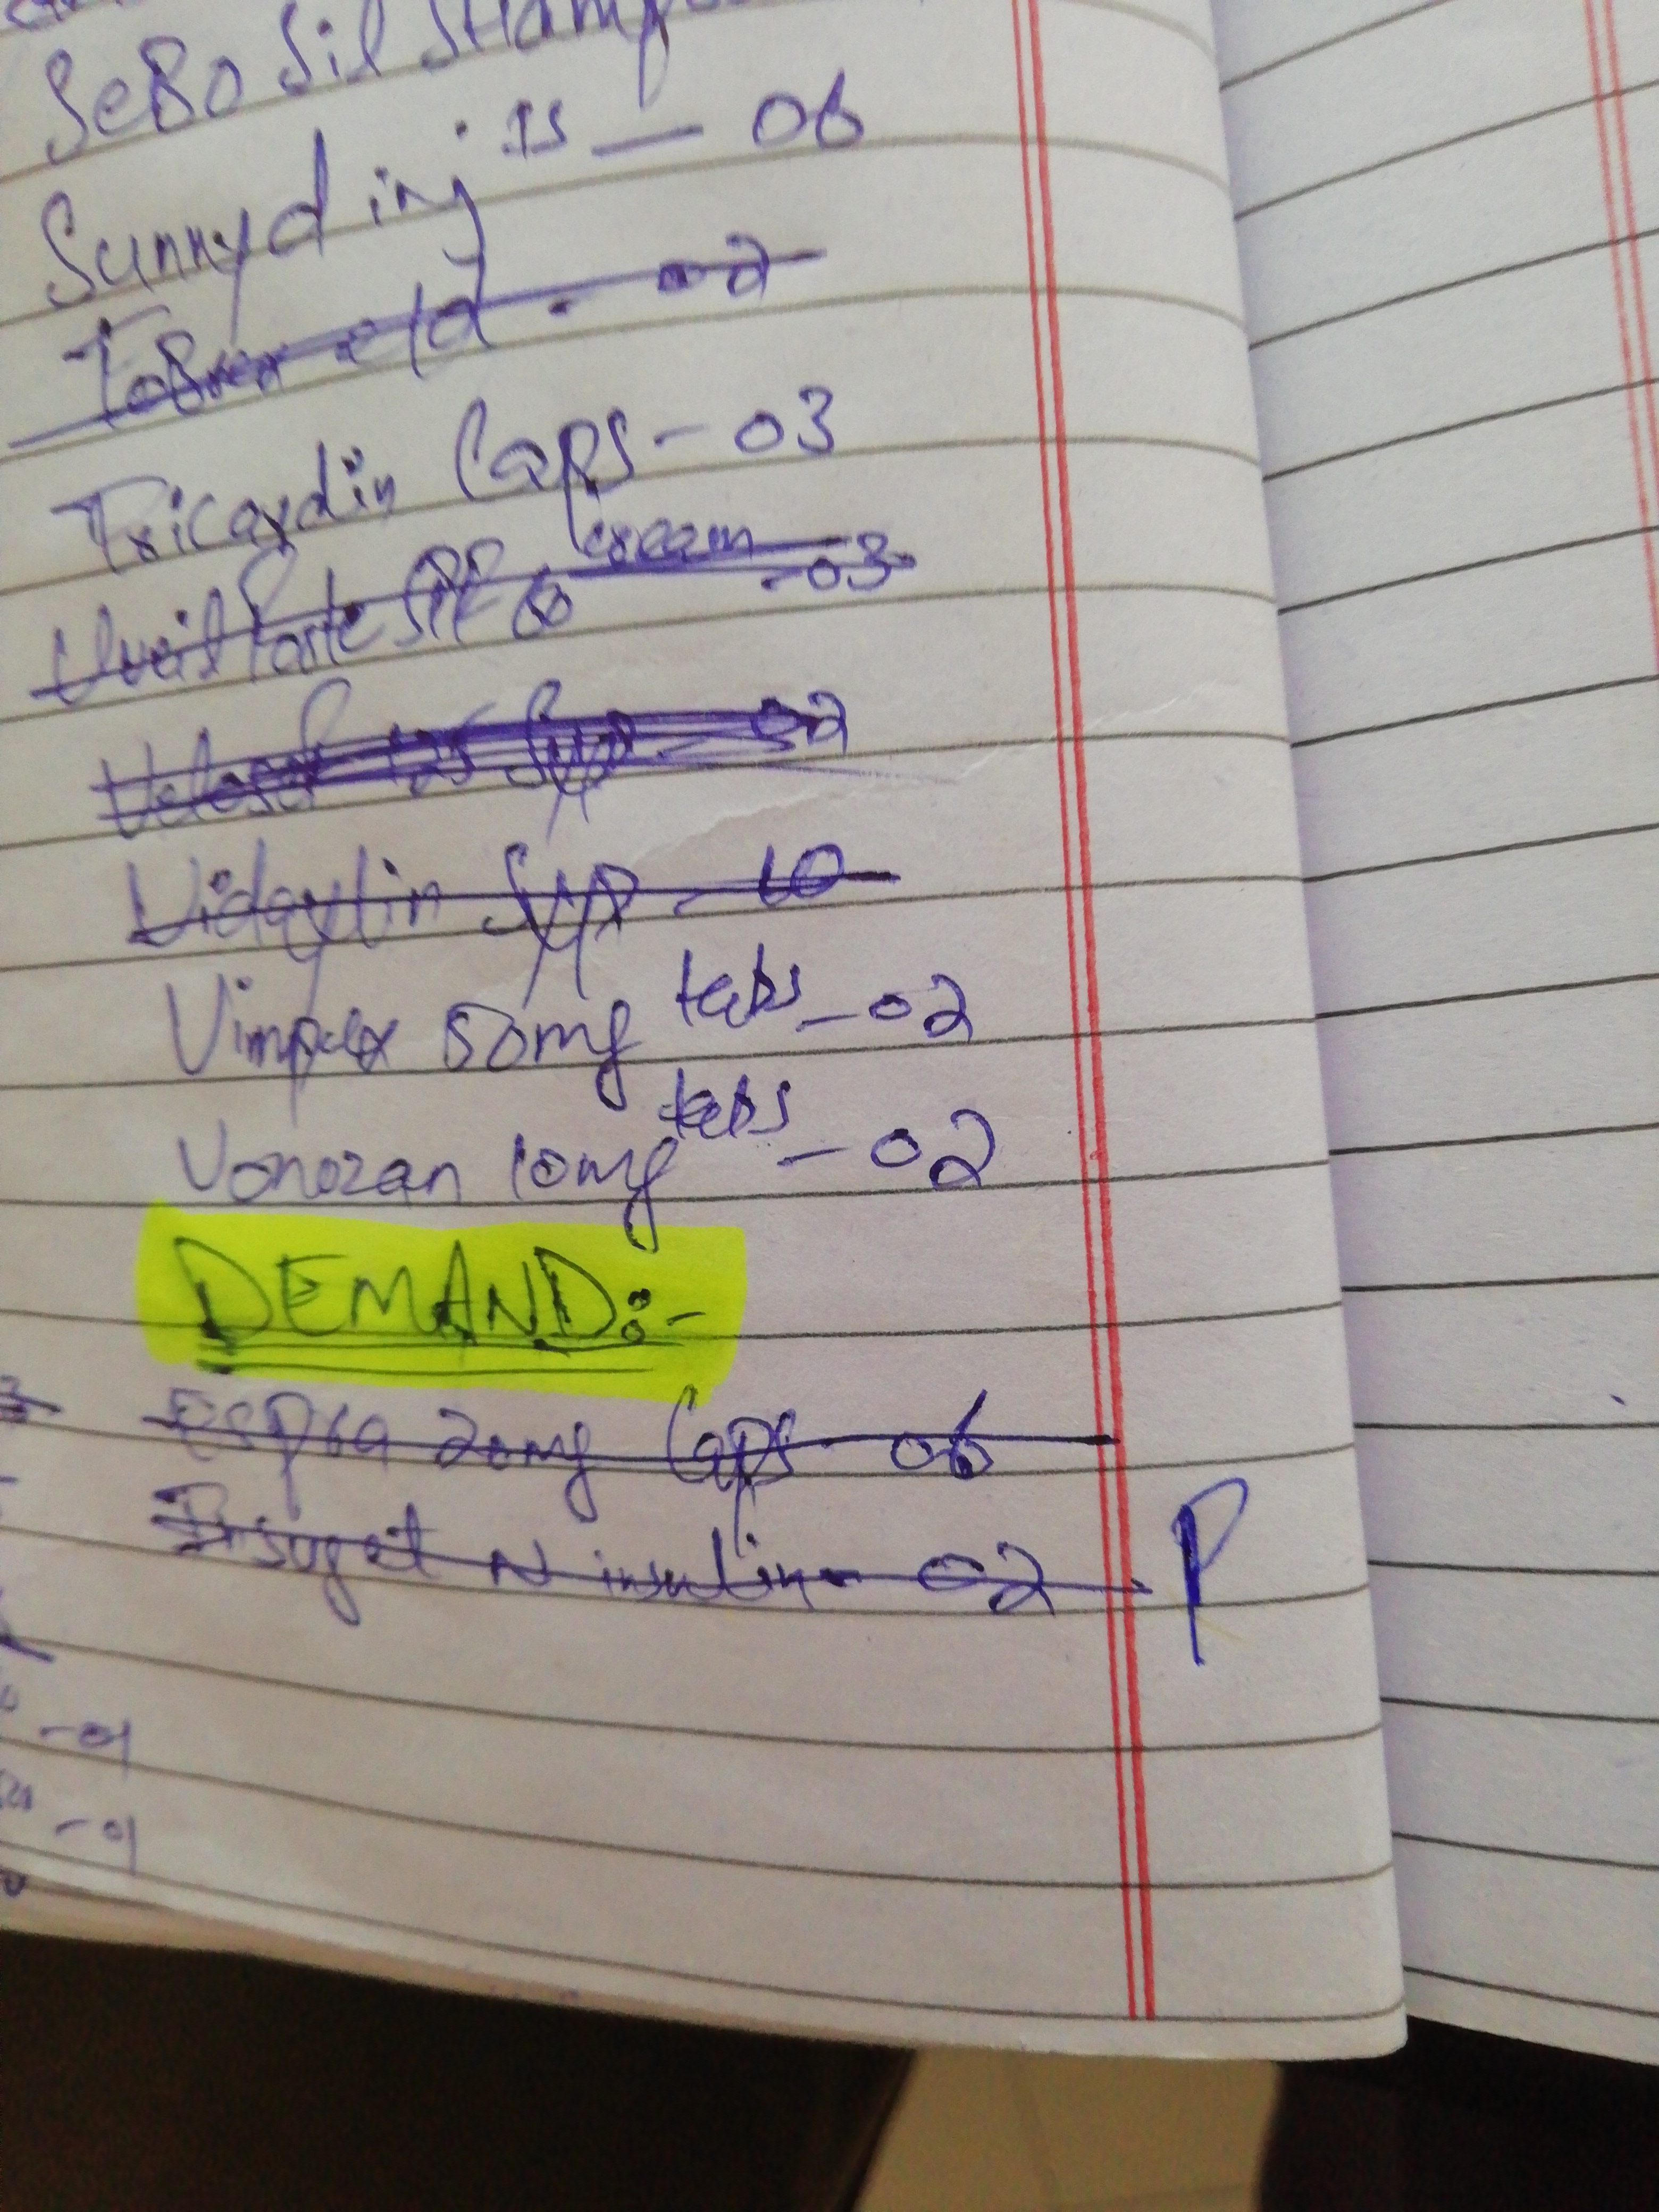 SeBo Sil Sham
Sunnyd inj 1s — 06
Tobrex e/d - 02
Tricardin Caps - 03
forte SPF 60 cream - 03
Velosef 125 Syp - 02
Vidaylin Syp - 10
Vimpax 50mg tabs - 02
Vonozan 10mg tabs - 02
DEMAND:-
Espra 20mg Caps - 06
Insuget N insulin - 02 P
-01
-01